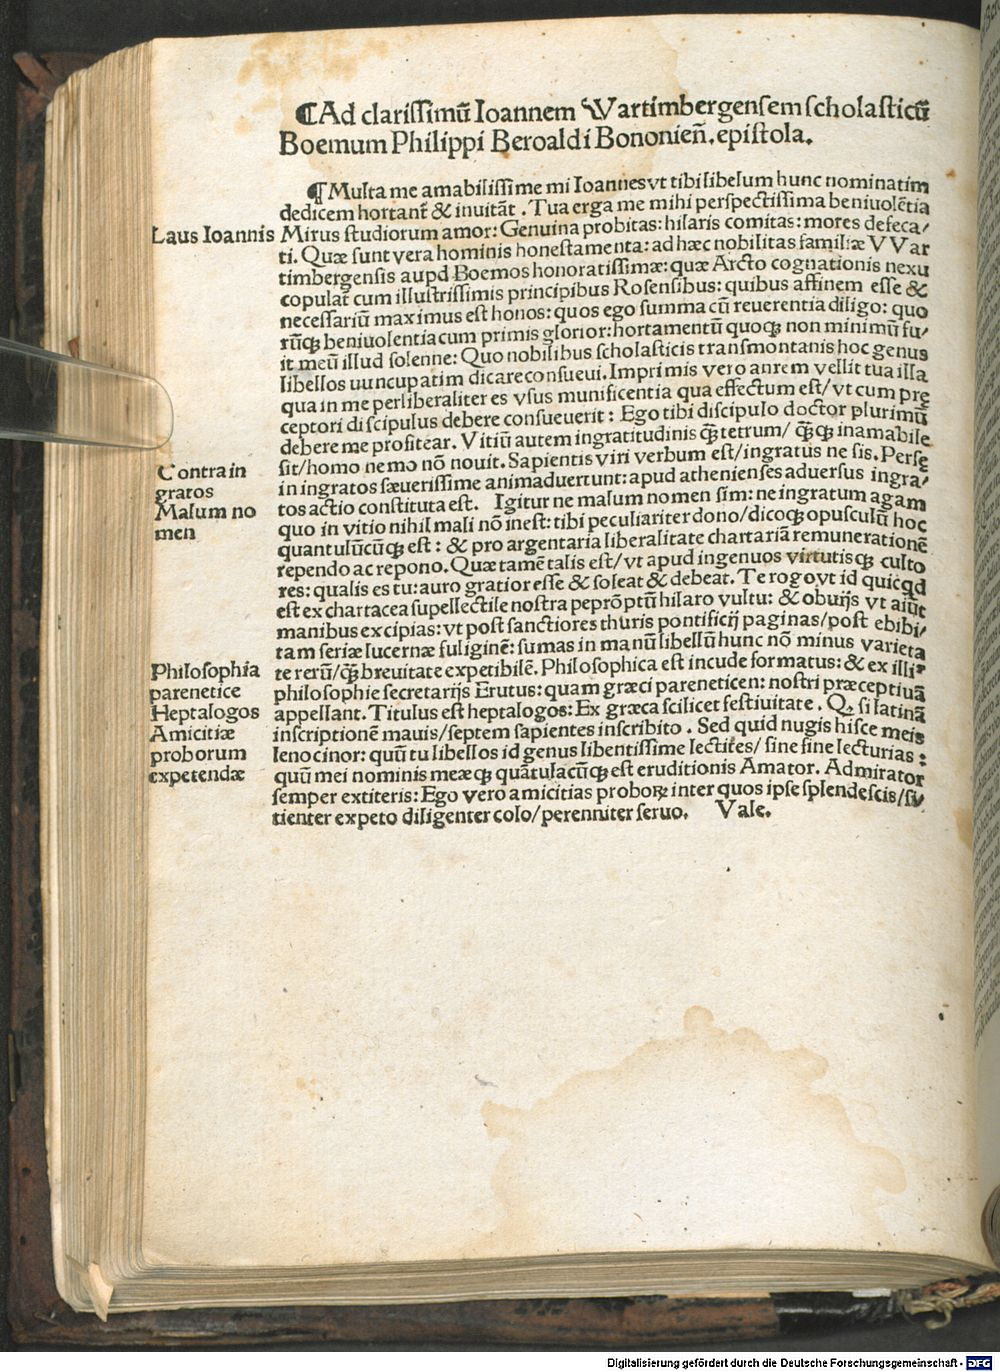 ¶Ad clarissimū Ioannem Wartimbergensem scholasticū
Boemum Philippi Beroaldi Bononieñ. epistola.
¶Multa me amabilissime mi Ioannes vt tibi libelum hunc nominatim
dedicem hortant̄ & inuitāt. Tua erga me mihi perspectissima beniuolētia
Laus Ioannis
Mirus studiorum amor: Genuina probitas: hilaris comitas: mores defeca/
ti. Quæ sunt vera hominis honestamenta: ad hæc nobilitas familiæ VVar
timbergensis aupd Boemos honoratissimæ: quæ Arcto cognationis nexu
copulat̄ cum illustrissimis principibus Rosensibus: quibus affinem esse &
necessariū maximus est honos: quos ego summa cū reuerentia diligo: quo
rūqꝫ beniuolentia cum primis glorior: hortamentū quoqꝫ non minimū fu/
it meū illud solenne: Quo nobilibus scholasticis transmontanis hoc genus
libellos uuncupatim dicare consueui. Imprimis vero aurem vellit tua illa
qua in me perliberaliter es vsus munificentia qua effectum est/ vt cum pre
ceptori discipulus debere consueuerit: Ego tibi discipulo doctor plurimū
debere me profitear. Vitiū autem ingratitudinis q̄ꝫ tetrum/ q̄ꝫqꝫ inamabile
Contra in
gratos
Malum no
men
sit/ homo nemo nō nouit. Sapientis viri verbum est/ ingratus ne sis. Perse
in ingratos sæuerissime animaduertunt: apud athenienses aduersus ingra/
tos actio constituta est. Igitur ne malum nomen sim: ne ingratum agam
quo in vitio nihil mali nō inest: tibi peculiariter dono/ dicoqꝫ opusculū hoc
quantulūcūqꝫ est: & pro argentaria liberalitate chartariā remunerationē
rependo ac repono. Quæ tamē talis est/ vt apud ingenuos virtutisqꝫ culto
res: qualis es tu: auro gratior esse & soleat & debeat. Te rogo vt id quicqd
est ex chartacea supellectile nostra peprōptū hilaro vultu: & obuijs vt aiūt
manibus excipias: vt post sanctiores thuris pontificij paginas/ post ebibi/
tam seriæ lucernæ fuliginē: sumas in manū libellū hunc nō minus varieta
Philosophia
parenetice
Heptalogos
Amicitiæ
proborum
expetendæ
te rerū/ q̄ꝫ breuitate expetibilē. Philosophica est incude formatus: & ex illi⸗
philosophie secretarijs Erutus: quam græci pareneticen: nostri præceptiuā
appellant. Titulus est heptalogos: Ex græca scilicet festiuitate. Q. si latinā
inscriptionē mauis/ septem sapientes inscribito. Sed quid nugis hisce meis
lenocinor: quū tu libellos id genus libentissime lectites/ sine fine lecturias:
quū mei nominis meæqꝫ quātulacūqꝫ est eruditionis Amator. Admirator
semper extiteris: Ego vero amicitias proboꝝ inter quos ipse splendescis/ si/
tienter expeto diligenter colo/ perenniter seruo. Vale.
Digitalisierung gefördert durch die Deutsche Forschungsgemeinschaft - DFG